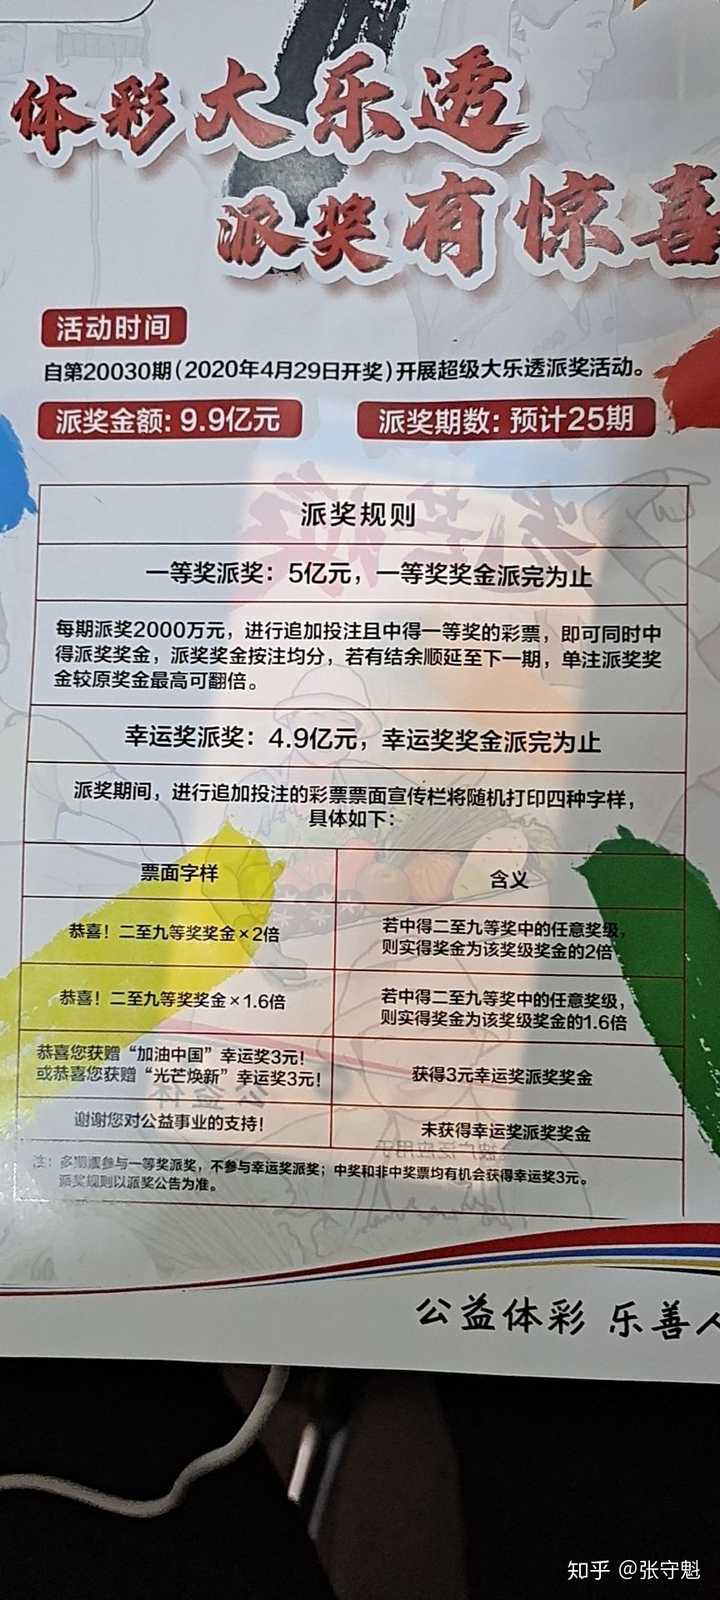 体彩大乐透
派奖有惊喜
活动时间
自第20030期(2020年4月29日开奖)开展超级大乐透派奖活动。
派奖金额:9.9亿元
派奖期数:预计25期
派奖规则
一等奖派奖：5亿元，一等奖奖金派完为止
每期派奖2000万元，进行追加投注且中得一等奖的彩票，即可同时中
得派奖奖金，派奖奖金按注均分，若有结余顺延至下一期，单注派奖奖
金较原奖金最高可翻倍。
幸运奖派奖：4.9亿元，幸运奖奖金派完为止
派奖期间，进行追加投注的彩票票面宣传栏将随机打印四种字样，
具体如下：
票面字样
含义
恭喜！二至九等奖奖金×2倍
若中得二至九等奖中的任意奖级，
则实得奖金为该奖级奖金的2倍
恭喜！二至九等奖奖金×1.6倍
若中得二至九等奖中的任意奖级，
则实得奖金为该奖级奖金的1.6倍
恭喜您获赠“加油中国”幸运奖3元！
或恭喜您获赠“光芒焕新”幸运奖3元！
获得3元幸运奖派奖奖金
谢谢您对公益事业的支持！
未获得幸运奖派奖奖金
注：多期票参与一等奖派奖，不参与幸运奖派奖；中奖和非中奖票均有机会获得幸运奖3元。
派奖规则以派奖公告为准。
公益体彩 乐善人
知乎 @张守魁